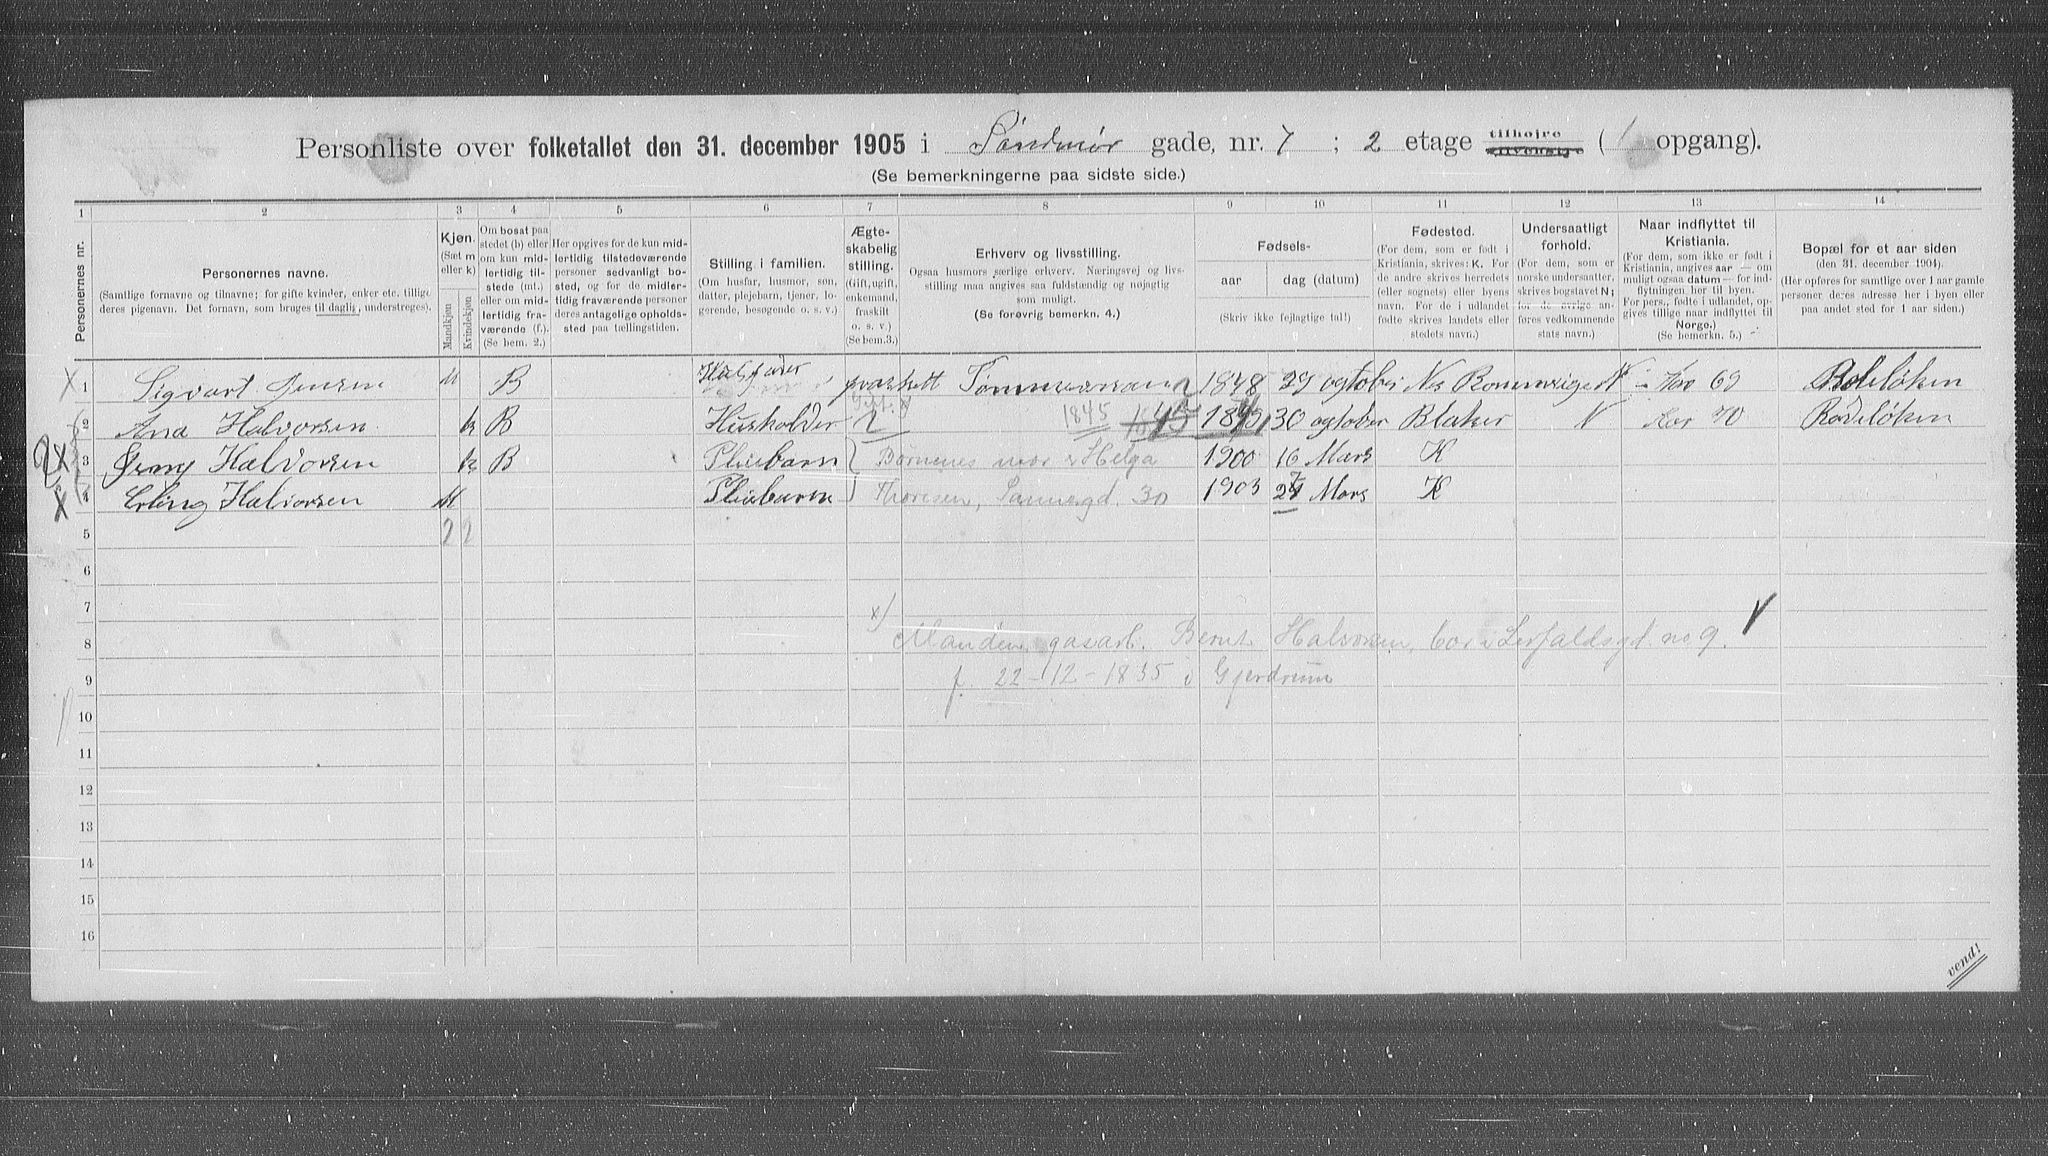 Personliste over folketallet den 31. december 1905 i Søndmør gade, nr. 7 ; 2 etage tilhøjre tilvenstre (1 opgang).
(Se bemerkningerne paa sidste side.)
1 2 3 4 5 6 7 8 9 10 11 12 13 14
Personernes nr.
Personernes navne.
(Samtlige fornavne og tilnavne; for gifte kvinder, enker etc. tillige deres pigenavn. Det fornavn, som bruges til daglig, understreges).
Kjøn.
(Sæt m eller k)
Mandkjøn
Kvindekjøn
Om bosat paa stedet (b) eller om kun midlertidig tilstede (mt.) eller om midlertidig fraværende (f.). (Se bem. 2.)
Her opgives for de kun midlertidig tilstedeværende personer sedvanligt bosted, og for de midlertidig fraværende personer deres antagelige opholdssted paa tællingstiden.
Stilling i familien.
(Om husfar, husmor, søn, datter, plejebarn, tjener, logerende, besøgende o. s. v.)
Ægteskabelig stilling.
(Gift, ugift, enkemand, fraskilt o. s. v.)
(Se bem. 3.)
Erhverv og livsstilling.
Ogsaa husmors særlige erhverv. Næringsvej og livsstilling maa angives saa fuldstændig og nøjagtig som muligt.
(Se forøvrig bemerkn. 4.)
Fødsels-
aar dag (datum)
(Skriv ikke fejlagtige tal!)
Fødested.
(For dem, som er født i Kristiania, skrives: K. For de andre skrives herredets (eller sognets) eller byens navn. For de i udlandet fødte skrives landets eller stedets navn.)
Undersaatligt forhold.
(For dem, som er norske undersaatter, skrives bogstavet N; for de øvrige anføres vedkommende stats navn.)
Naar indflyttet til Kristiania.
(For dem, som ikke er født i Kristiania, angives aar — om muligt ogsaa datum — for indflytningen her til byen. For pers., fødte i udlandet, opgives tillige naar indflyttet til Norge.)
(Se bemerkn. 5.)
Bopæl for et aar siden
(den 31. december 1904).
(Her opføres for samtlige over 1 aar gamle personer deres adresse her i byen eller paa andet sted for 1 aar siden.)
1 Sigvart Jensen M B Husfader Tømmermann 1848 29 ogtober Ns Rommerige N Aar 69 Rodeløken
2 Ana Halvorsen k B Husholder Gift x) 1845 45 30 ogtober Blaker N Aar 70 Rodeløken
3 Jenny Halvorsen k B Pleiebarn Børnenes mor er Helga 1900 16 Mars K
4 Erling Halvorsen M Pleiebarn Thoresen, Sannergd. 30 1903 27 Mars K
5 2 2
6
7 x)
8 Manden, gasarb. Bernt Halvorsen, bor i Leirfaldsgd. no 9.
9 f. 22-12-1835 i Gjerdrum
10
11
12
13
14
15
16
vend!